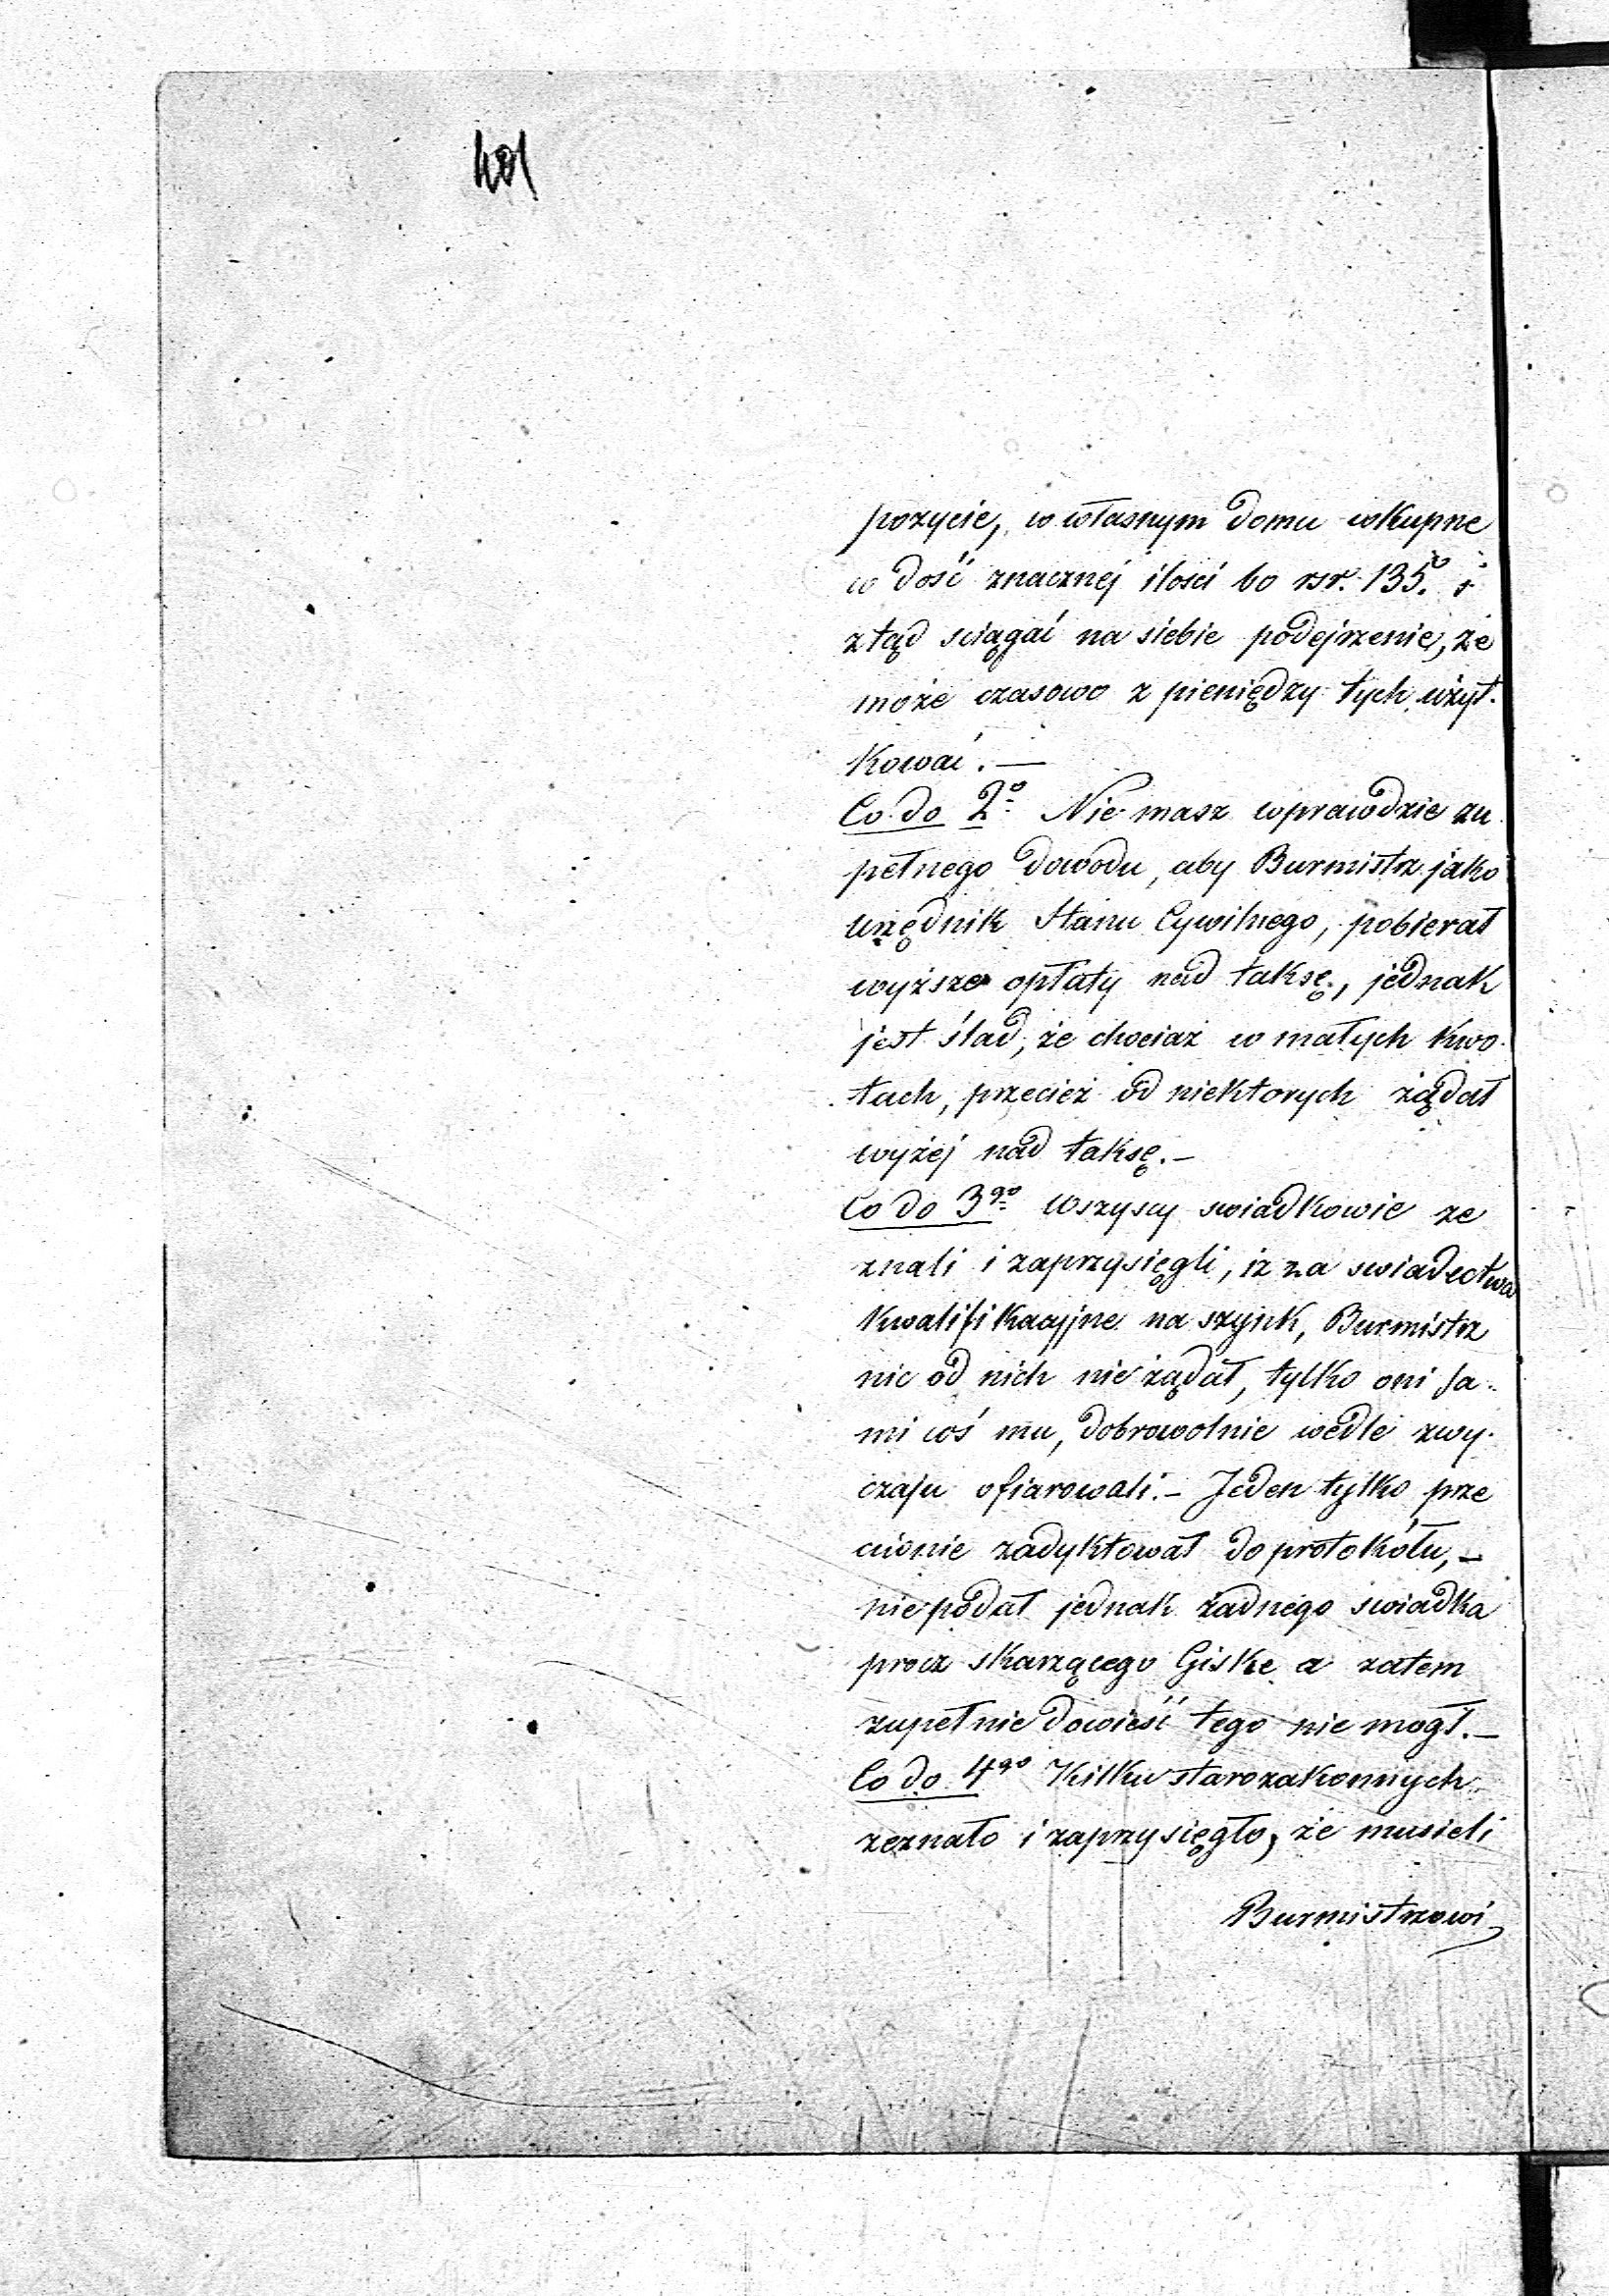 401
pozycie, w własnym domu wkupne
w dość znacznéj ilosci bo rsr. 135. i
ztąd sciągać na siebie podejrzenie, że
może czasowo z pieniędzy tych użyt.
kować. —
Co do 2º Nie masz wprawdzie zu
pełnego dowodu, aby Burmistrz jako
urzędnik Stanu Cywilnego, pobierał
wyższe opłaty nad taksę, jednak
jest ślad, że chociaż w małych kwo.
tach, przecież od niektorych żądał
wyżéj nad taksę. —
Co do 3go Wszyscy swiadkowie ze
znali i zaprzysięgli, iz za swiadectwa
kwalifikacyjne na szynk, Burmistrz
nic od nich nie żądał, tylko oni sa.
mi coś mu, dobrowolnie wedle zwy.
czaju ofiarowali. — Jeden tylko prze
ciwnie zadyktował do protokółu, —
niepodał jednak żadnego swiadka
procz skarzącego Giske a zatem
zupełnie dowieść tego nie mogł. —
Co do 4go Kilku starozakonnych
zeznało i zaprzysięgło, że musieli
Burmistrzowi